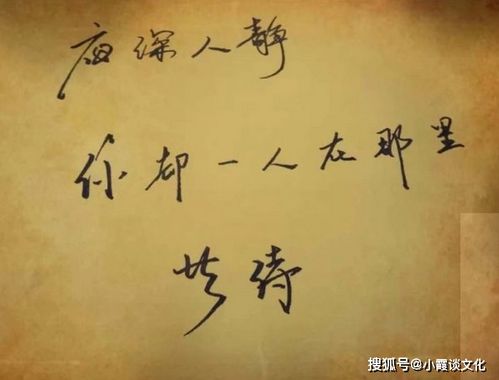 夜深人静
你却一人在那里
待
搜狐号@小霞谈文化